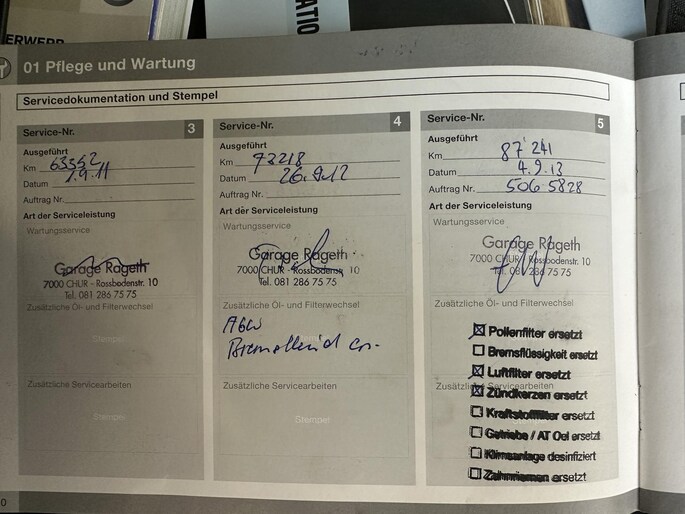 ERWERB
ATION
01 Pflege und Wartung
Servicedokumentation und Stempel
Service-Nr. 3
Ausgeführt
Km 63552
Datum 1.9.11
Auftrag Nr.
Art der Serviceleistung
Wartungsservice
Garage Rageth
7000 CHUR - Rossbodenstr. 10
Tel. 081 286 75 75
Zusätzliche Öl- und Filterwechsel
Stempel
Zusätzliche Servicearbeiten
Stempel
Service-Nr. 4
Ausgeführt
Km 73218
Datum 26.9.12
Auftrag Nr.
Art der Serviceleistung
Wartungsservice
Garage Rageth
7000 CHUR - Rossbodenstr. 10
Tel. 081 286 75 75
Zusätzliche Öl- und Filterwechsel
Zusätzliche Servicearbeiten
Stempel
Service-Nr. 5
Ausgeführt
Km 87'241
Datum 4.9.13
Auftrag Nr. 506 5828
Art der Serviceleistung
Wartungsservice
Garage Rageth
7000 CHUR - Rossbodenstr. 10
Tel. 081 286 75 75
Zusätzliche Öl- und Filterwechsel
Pollenfilter ersetzt
Bremsflüssigkeit ersetzt
Luftfilter ersetzt
Zusätzliche Servicearbeiten
Zündkerzen ersetzt
Kraftstofffilter ersetzt
Getriebe / AT Oel ersetzt
Klimaanlage desinfiziert
Zahnriemen ersetzt
0